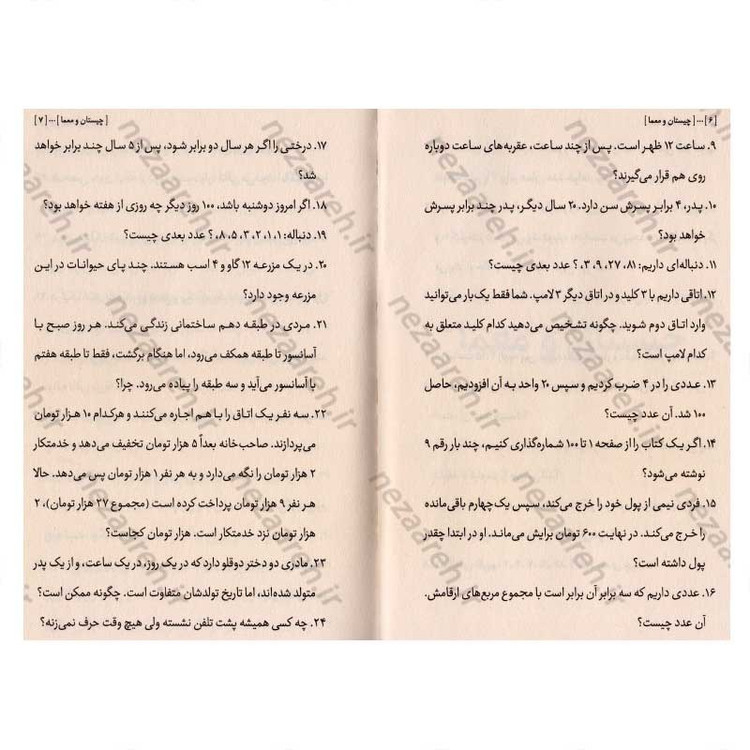 [۶] ... [چیستان و معما]
۹. ساعت ۱۲ ظهر است. پس از چند ساعت، عقربه‌های ساعت دوباره
روی هم قرار می‌گیرند؟
۱۰. پدر، ۴ برابر پسرش سن دارد. ۲۰ سال دیگر، پدر چند برابر پسرش
خواهد بود؟
۱۱. دنباله‌ای داریم: ۸۱، ۲۷، ۹، ۳، ؟ عدد بعدی چیست؟
۱۲. اتاقی داریم با ۳ کلید و در اتاق دیگر ۳ لامپ. شما فقط یک بار می‌توانید
وارد اتاق دوم شوید. چگونه تشخیص می‌دهید کدام کلید متعلق به
کدام لامپ است؟
۱۳. عددی را در ۴ ضرب کردیم و سپس ۲۰ واحد به آن افزودیم، حاصل
۱۰۰ شد. آن عدد چیست؟
۱۴. اگر یک کتاب را از صفحه ۱ تا ۱۰۰ شماره‌گذاری کنیم، چند بار رقم ۹
نوشته می‌شود؟
۱۵. فردی نیمی از پول خود را خرج می‌کند، سپس یک‌چهارم باقی‌مانده
را خرج می‌کند. در نهایت ۶۰۰ تومان برایش می‌ماند. او در ابتدا چقدر
پول داشته است؟
۱۶. عددی داریم که سه برابر آن برابر است با مجموع مربع‌های ارقامش.
آن عدد چیست؟
[چیستان و معما] ... [۷]
۱۷. درختی را اگر هر سال دو برابر شود، پس از ۵ سال چند برابر خواهد
شد؟
۱۸. اگر امروز دوشنبه باشد، ۱۰۰ روز دیگر چه روزی از هفته خواهد بود؟
۱۹. دنباله: ۱، ۱، ۲، ۳، ۵، ۸، ؟ عدد بعدی چیست؟
۲۰. در یک مزرعه ۱۲ گاو و ۴ اسب هستند. چند پای حیوانات در این
مزرعه وجود دارد؟
۲۱. مردی در طبقه دهم ساختمانی زندگی می‌کند. هر روز صبح با
آسانسور تا طبقه همکف می‌رود، اما هنگام برگشت، فقط تا طبقه هفتم
با آسانسور می‌آید و سه طبقه را پیاده می‌رود. چرا؟
۲۲. سه نفر یک اتاق را با هم اجاره می‌کنند و هرکدام ۱۰ هزار تومان
می‌پردازند. صاحب‌خانه بعداً ۵ هزار تومان تخفیف می‌دهد و خدمتکار
۲ هزار تومان را نگه می‌دارد و به هر نفر ۱ هزار تومان پس می‌دهد. حالا
هر نفر ۹ هزار تومان پرداخت کرده است (مجموع ۲۷ هزار تومان)، ۲
هزار تومان نزد خدمتکار است. هزار تومان کجاست؟
۲۳. مادری دو دختر دوقلو دارد که در یک روز، در یک ساعت، و از یک پدر
متولد شده‌اند، اما تاریخ تولدشان متفاوت است. چگونه ممکن است؟
۲۴. چه کسی همیشه پشت تلفن نشسته ولی هیچ وقت حرف نمی‌زنه؟
nezaareh.ir
nezaareh.ir
nezaareh.ir
nezaareh.ir
nezaareh.ir
nezaareh.ir